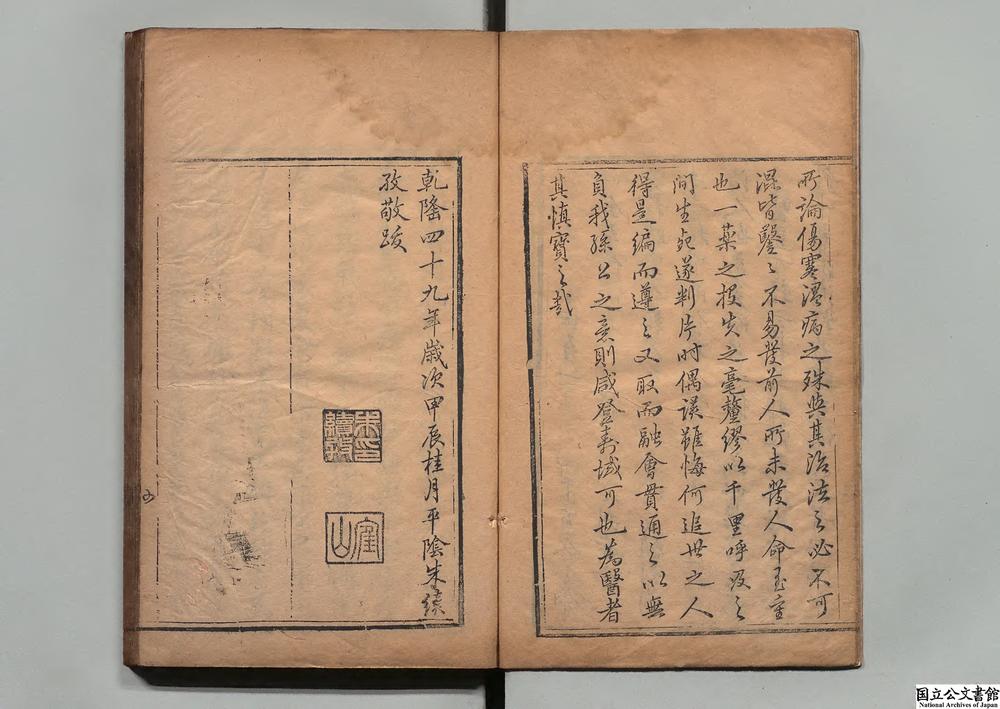 所論傷寒溫病之殊與其治法之必不可
混皆鑿之不易發前人所未發人命至重
也一藥之投失之毫釐繆以千里呼及之
間生死遂判片時偶誤雖悔何追世之人
得是編而遵之又取而融會貫通之以無
負我孫公之意則咸登壽域可也為醫者
其慎寶之哉
乾隆四十九年歲次甲辰桂月平陰朱續
孜敬跋
朱印續孜
山
国立公文書館
National Archives of Japan